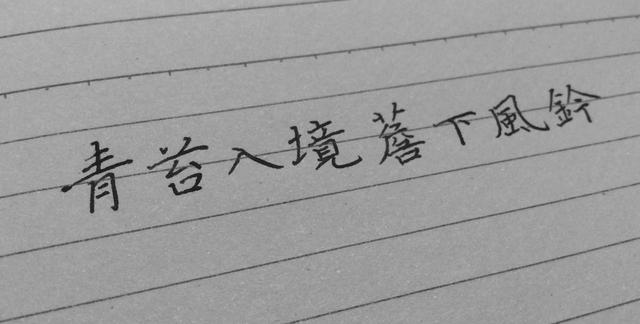 青苔入境簷下風鈴